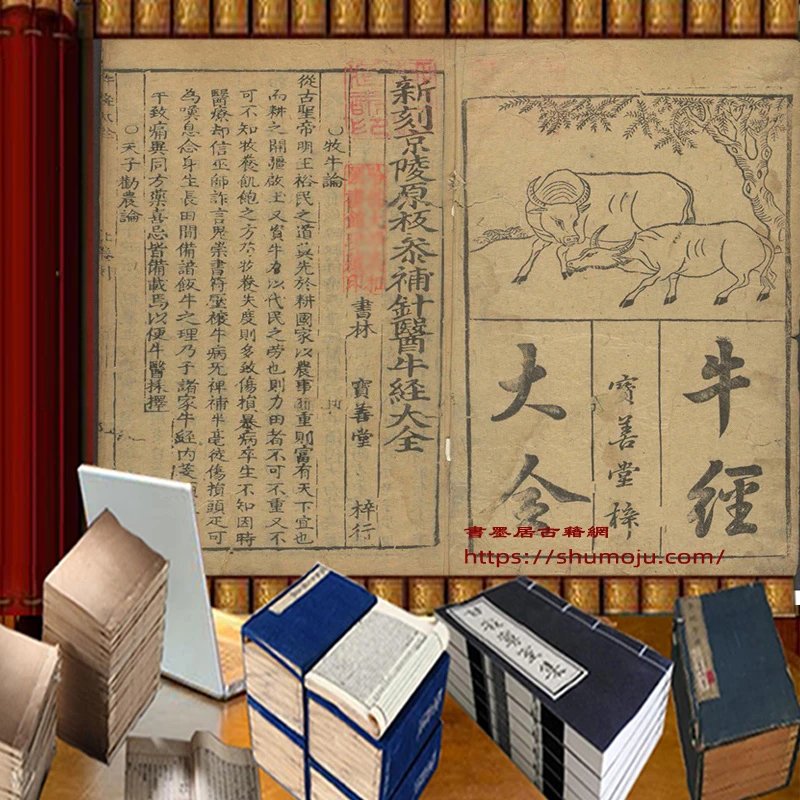 牛經
寶善堂梓
大全
新刻京陵原板參補針醫牛經大全
書林 寶善堂 梓行
○牧牛論
從古聖帝明王裕民之道莫先於耕國家以農事爲重則富有天下宜也
而耕之開疆啟土又資牛力以代民之勞也則力田者不可不重又不
可不知牧養飢飽之方若牧養失度則多致傷損暴病卒生不知因時
醫療却信巫師詐言鬼祟書符壓禳牛病死裨補半毫後傷損頭疋可
為嘆息念身生長田開備諳飯牛之理乃于諸家牛經內
平致痛異同方藥喜忌皆備載焉以便牛醫採擇
○天子勸農論
書墨居古籍網
https://shumoju.com/